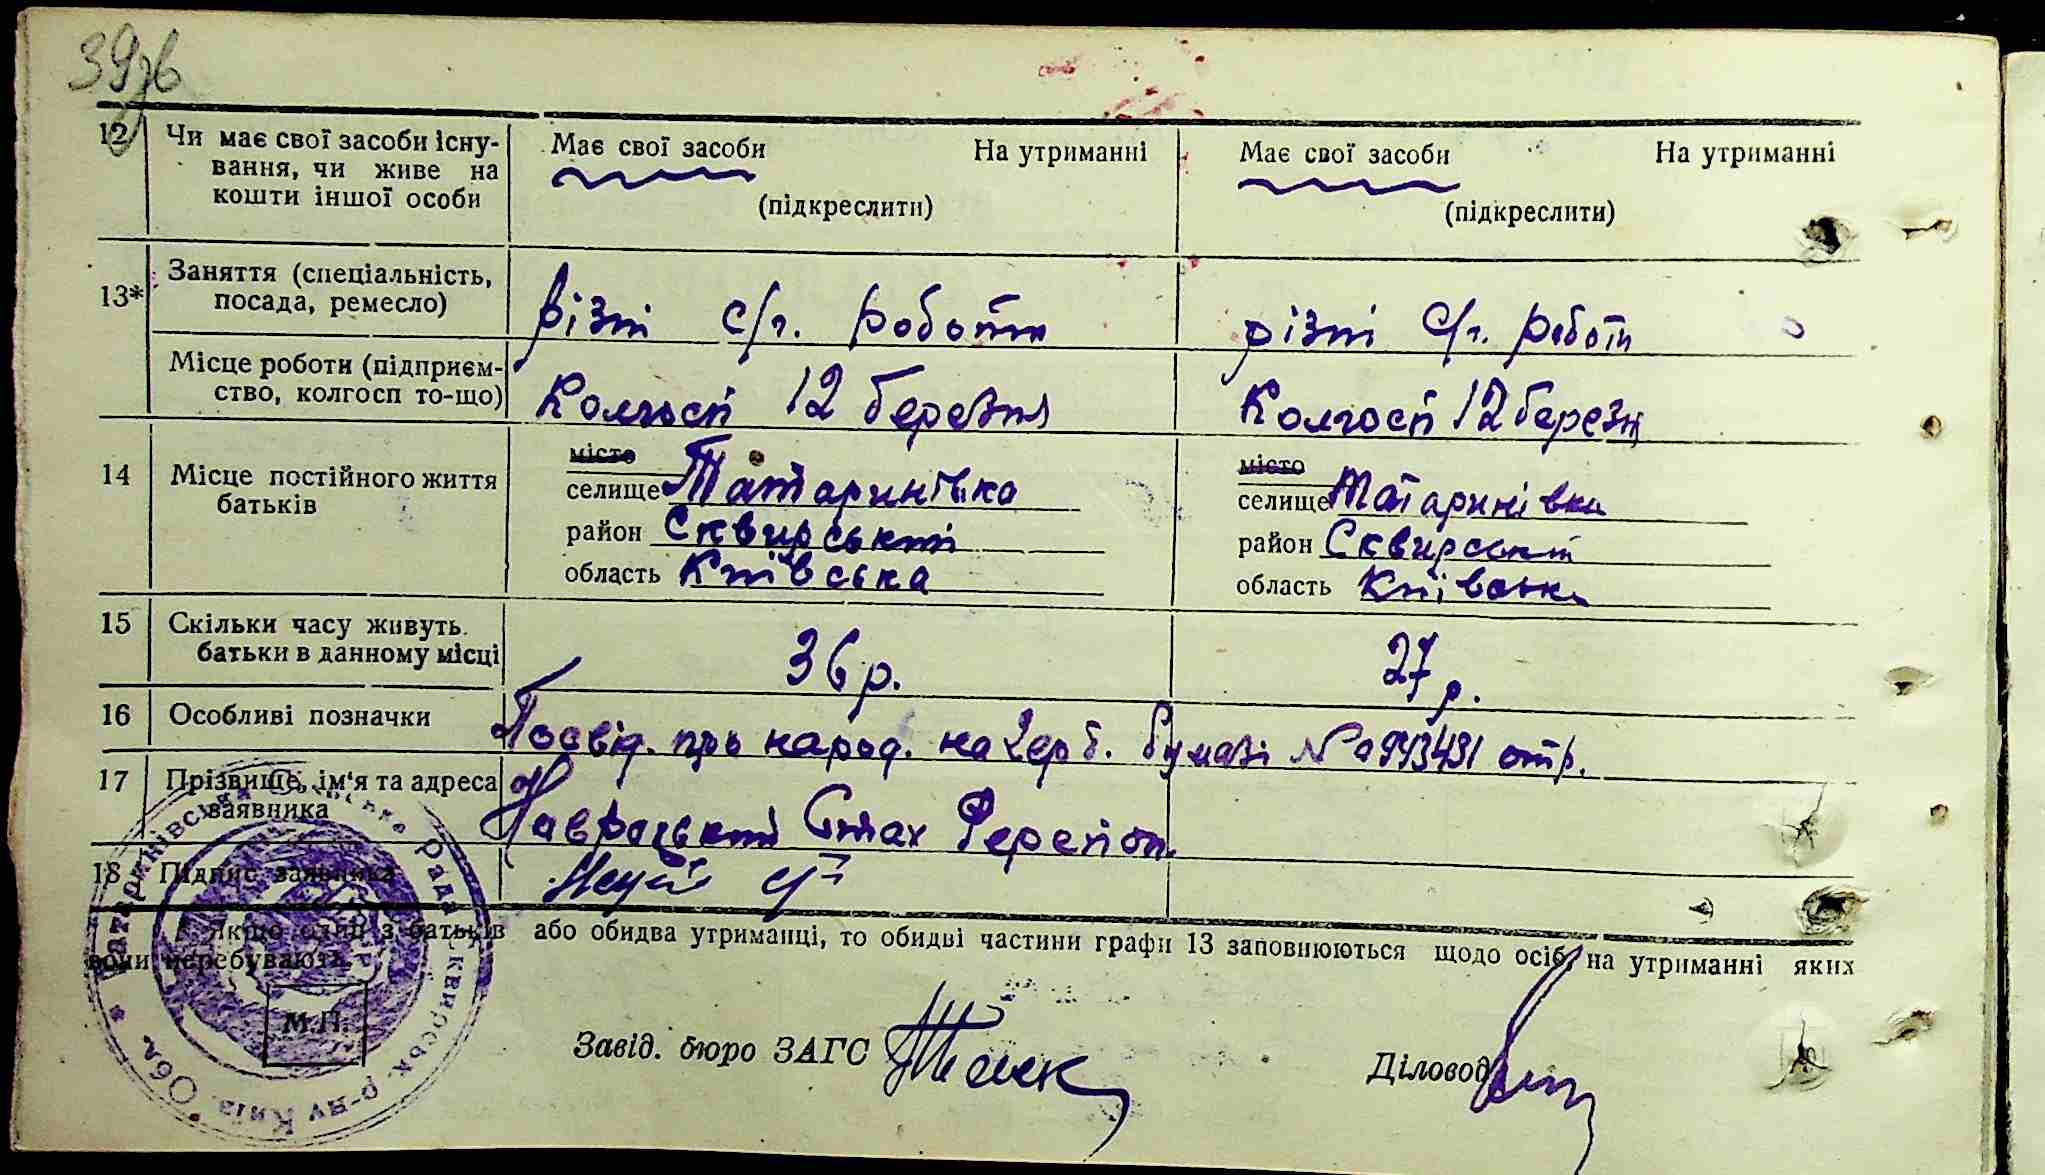 39зв
12 Чи має свої засоби існу- Має свої засоби На утриманні Має свої засоби На утриманні
вання, чи живе на
кошти іншої особи (підкреслити) (підкреслити)
13* Заняття (спеціальність, різні с/г. роботи різні с/г. роботи
посада, ремесло)
Місце роботи (підприєм- Колгосп 12 березня Колгосп 12 березня
ство, колгосп то-що)
14 Місце постійного життя місто місто
батьків селище Татаринівка селище Татаринівка
район Сквирський район Сквирський
область Київська область Київська
15 Скільки часу живуть 36 р. 27 р.
батьки в данному місці
16 Особливі позначки Посвід. про народ. на герб. бумазі № 0943431 отр.
17 Прізвище, ім'я та адреса
заявника Навроцький Стах
18 Підпис заявника
* Якщо один з батьків або обидва утриманці, то обидві частини графи 13 заповнюються щодо осіб, на утриманні яких
вони перебувають.
М.П.
Завід. бюро ЗАГС Діловод
Татаринівська Сільська Рада Сквирськ. р-ну Київ. Обл.